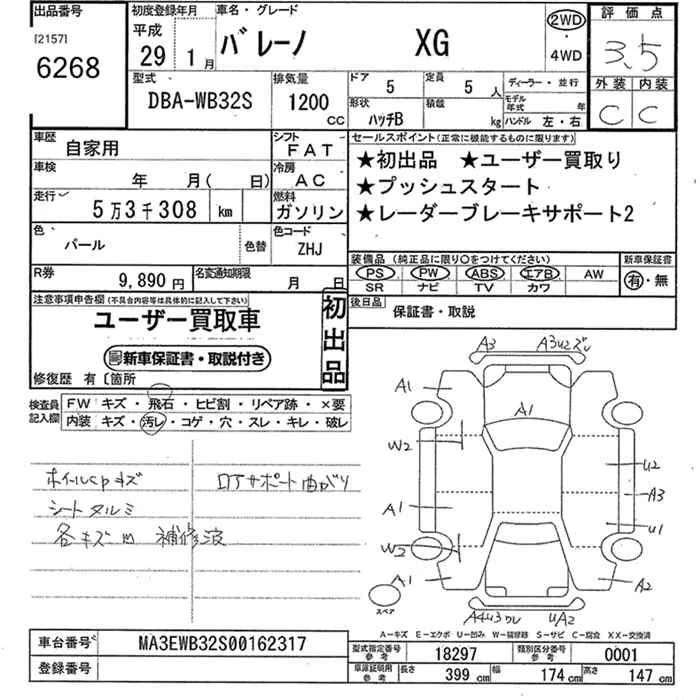 出品番号
[2157]
6268
初度登録年月
平成
29 1月
車名・グレード
バレーノ XG
2WD
・
4WD
評価点
3.5
外装 内装
C C
型式
DBA-WB32S
排気量
1200
CC
ドア
5
定員
5人
形状
ハッチB
積載
kg
ディーラー・並行
モデル年式 年
ハンドル 左・右
車歴
自家用
シフト
FAT
車検
年 月( 日)
冷房
AC
走行
5万3千308 km
燃料
ガソリン
色
パール
色替
色コード
ZHJ
R券
9,890円
名変通知期限
月 日
セールスポイント(正常に機能するものに限ります)
★初出品 ★ユーザー買取り
★プッシュスタート
★レーダーブレーキサポート2
装備品(純正品に限り○をつけてください)
PS PW ABS エアB AW
SR ナビ TV カワ
新車保証書
有・無
後日品
保証書・取説
注意事項申告欄(不具合内容等は具体的に記入して下さい)
ユーザー買取車
新車保証書・取説付き
初出品
修復歴 有〔箇所
検査員記入欄
FW キズ・飛石・ヒビ割・リペア跡・×要
内装 キズ・汚レ・コゲ・穴・スレ・キレ・破レ
ホイルcpキズ
シートタルミ
各キズ凹 補修波
ロアサポート曲がり
A3 A3U2ズレ
A1
A1
W2
U2
A3
A1
U1
W2
A1
A2
スペア
A4U3ワレ UA2
A-キズ E-エクボ U-凹み W-補修跡 S-サビ C-腐食 XX-交換済
車台番号
MA3EWB32S00162317
登録番号
型式指定番号
参考
18297
類別区分番号
参考
0001
車庫証明用
参考
長さ 399 cm 幅 174 cm 高さ 147 cm